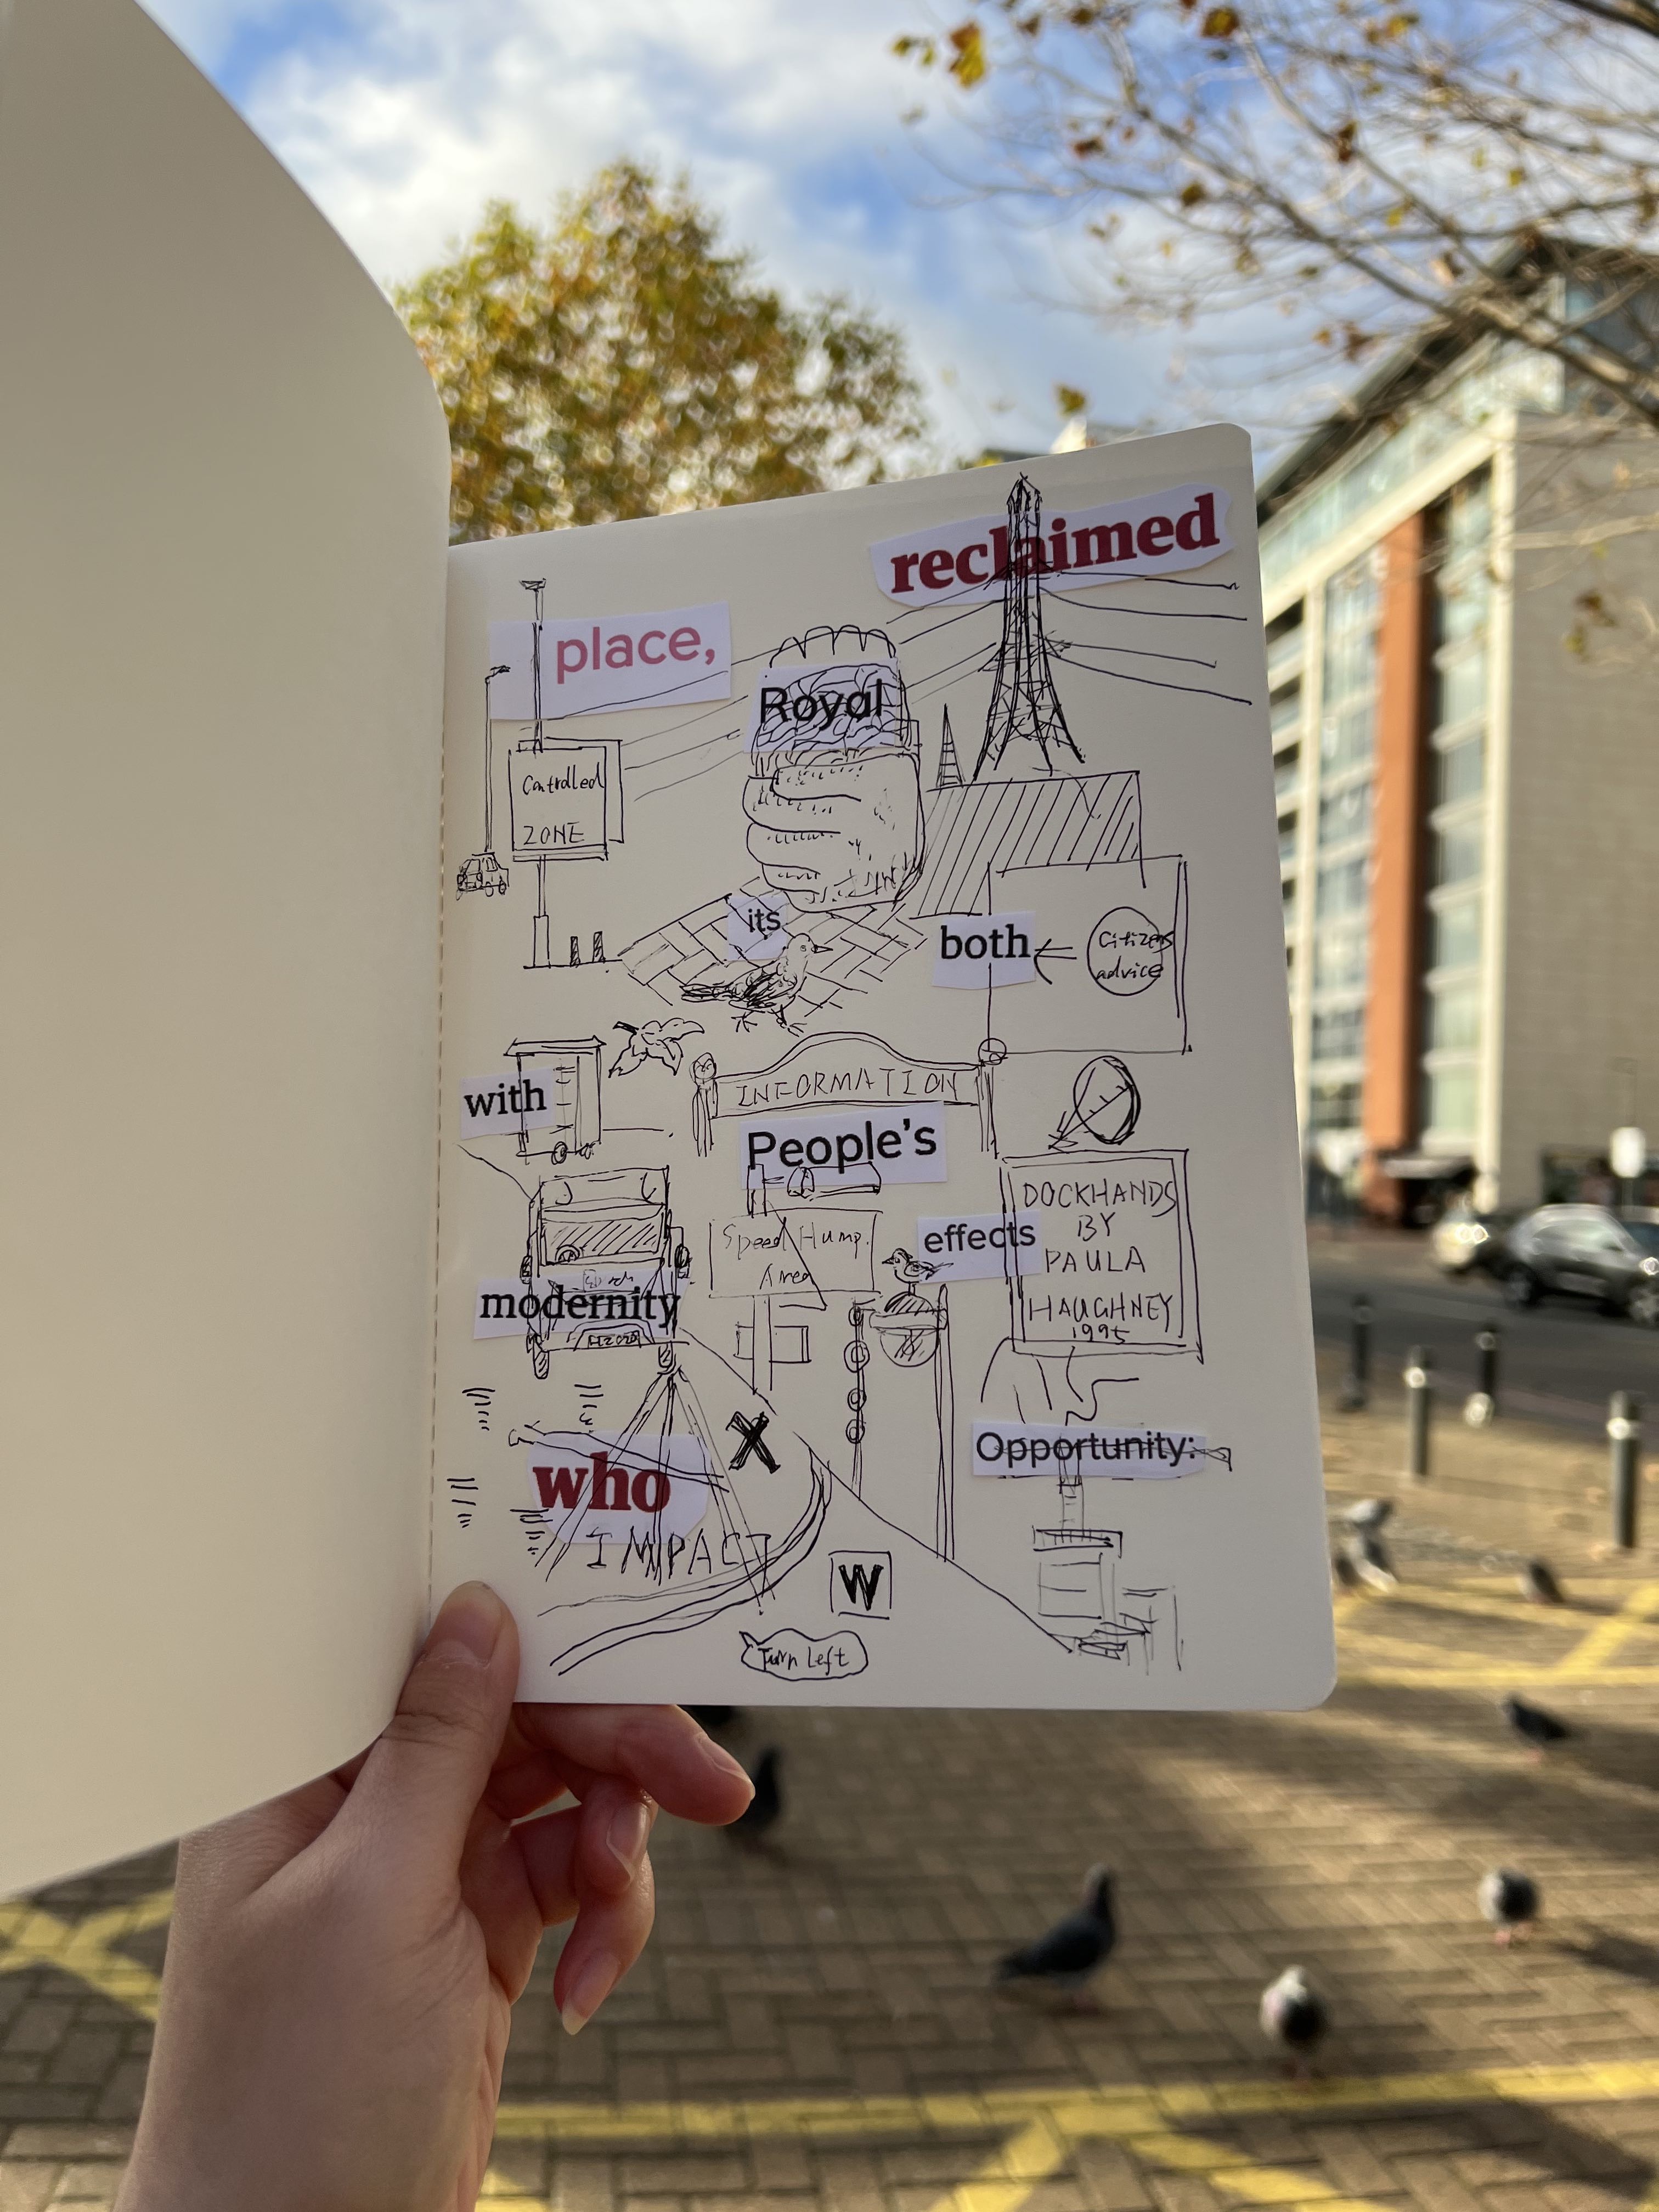 reclaimed
place,
Royal
Controlled
ZONE
its
both
Citizens
advice
with
INFORMATION
People's
DOCKHANDS
BY
PAULA
HAUGHNEY
1995
effects
Speed Hump
Area
modernity
X
Opportunity:
who
IMPACT
W
Turn Left